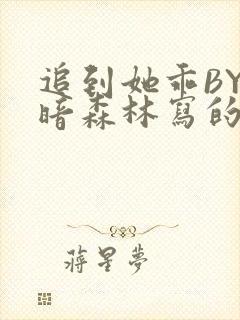 追到她乖BY
暗森林寫的
蔣星夢